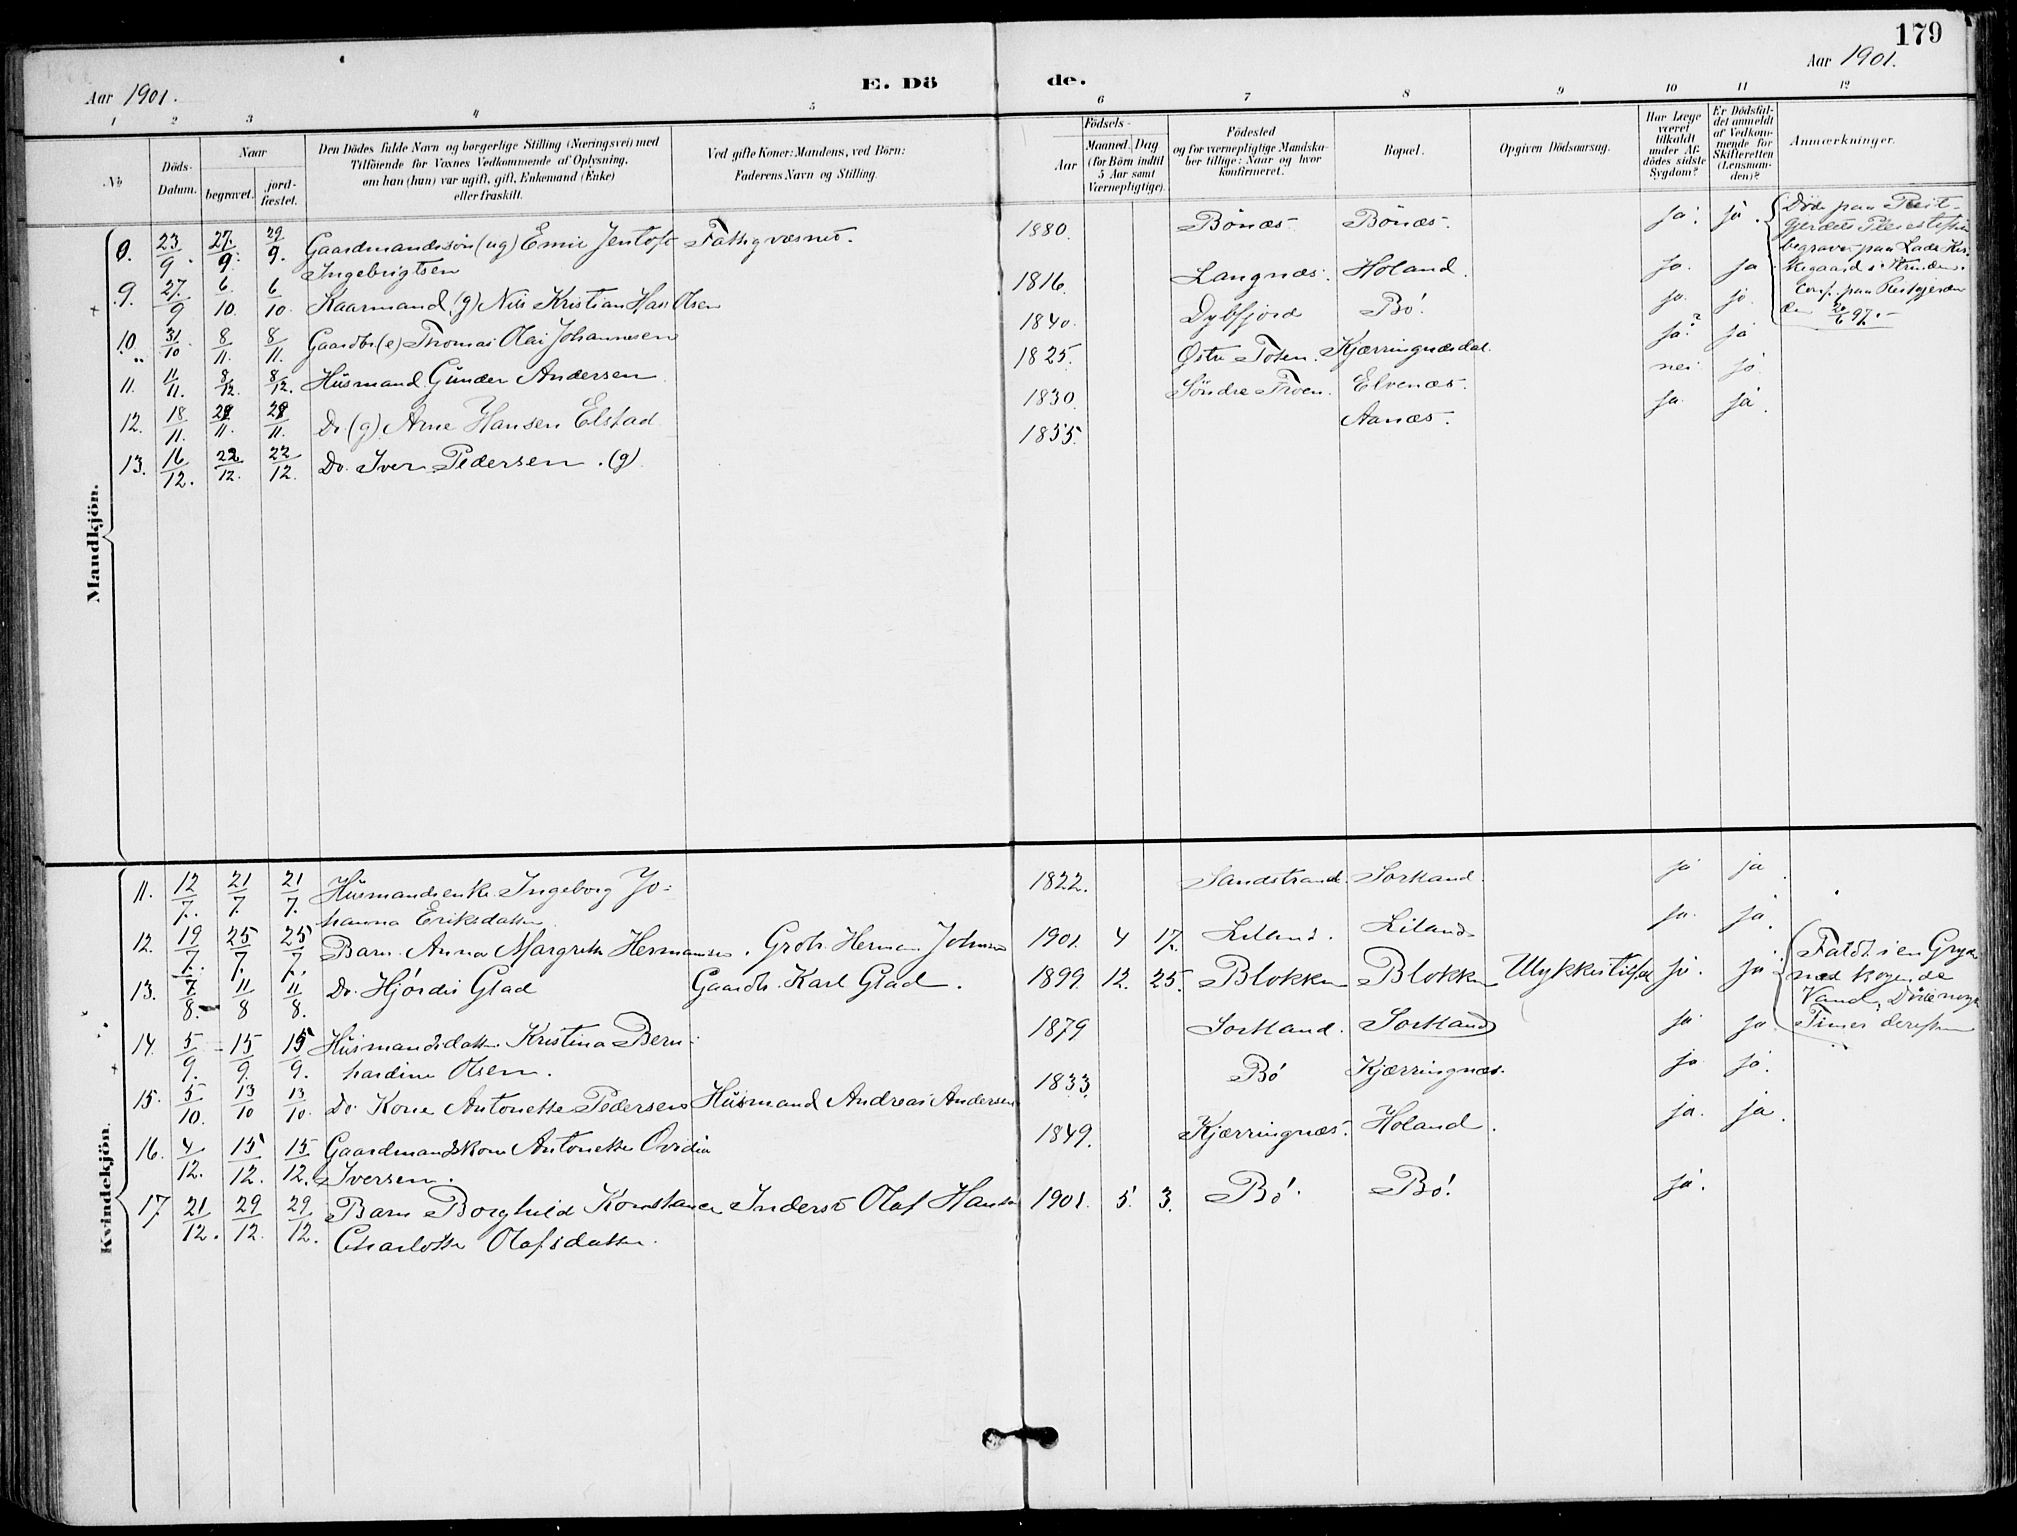 179
Aar 1901.
E. Döde.
Aar 1901.
1 2 3 4 5 6 7 8 9 10 11 12
No
Döds-Datum.
Naar
begravet.
jordfæstet.
Den Dödes fulde Navn og borgerlige Stilling (Næringsvei) med
Tilföiende for Voxnes Vedkommende af Oplysning,
om han (hun) var ugift, gift, Enkemand (Enke)
eller fraskilt.
Ved gifte Koner: Mandens, ved Börn:
Faderens Navn og Stilling.
Födsels-
Aar
Maaned. Dag
(for Börn indtil
5 Aar samt
Værnepligtige).
Födested
og for værnepligtige Mandskaber tillige: Naar og hvor
konfirmeret.
Bopæl.
Opgiven Dödsaarsag.
Har Læge
været
tilkaldt
under Afdödes sidste
Sygdom?
Er Dödsfaldet anmeldt
af Vedkommende for
Skifteretten
(Lensmanden)?
Anmærkninger.
Mandkjön.
8. 23/9. 27/9. 29/9. Gaardmandssön (ug) Emil Jentoft Fattigvæsnet. 1880. Bönæs. Bönæs. ja. ja.
Ingebrigtsen
Döde paa
begravet paa Lade Kirkegaard i Strinden.
9. 27/9 6/10. 6/10. Kaarmand (g) Nils Kristian Hass Olsen 1816. Langnæs. Holand. ja. ja
10. 31/10. 8/11. 8/11. Gaardbr. (e) Thomas Olai Johannesen 1840. Dybfjord Bö. ja. ja.
11. 11/11. 8/12. 8/12. Husmand Gunder Andersen 1825. Østre Toten. Kjærringnæsdal. ja? ja
12. 18/11. 28/11. 28/11. Do (g) Arne Hansen Elstad 1830. Söndre Froen. Elvenæs. nei ja
13. 16/12. 22/12. 22/12. Do. Iver Pedersen. (g) 1855. Aanæs. ja. ja.
Kvindekjön.
11. 12/7. 21/7. 21/7. Husmandsenke Ingeborg Jo- 1822. Sandstrand. Sortland. ja ja.
hanna Eriksdatter
12. 19/7. 25/7. 25/7. Barn Anna Margrethe Hermansen. Grdbr. Herman Johnsen 1901. 4 17. Liland. Liland. ja. ja.
13. 7/8. 11/8 11/8. Do. Hjördis Glad Gaardbr. Karl Glad. 1899. 12. 25. Blokken Blokken Ulykkestilfæl ja. ja
Faldt i en Gryde
med kogende
Vand, Döde nogle
Timer derefter
14. 5/9. 15/9. 15/9. Husmandsdatter Kristina Bern- 1879 Sortland. Sortland ja ja
hardine Olsen.
15. 5/10. 13/10 13/10. Do. Kone Antonette Pedersen Husmand Andreas Andersen 1833. Bö Kjærringnæs. ja ja.
16. 4/12. 15/12. 15/12. Gaardmandskone Antonette Ovidia 1849. Kjærringnæs. Holand. ja. ja.
Iversen.
17 21/12. 29/12. 29/12. Barn Borghild Konstance Inderst Olaf Hansen 1901. 5. 3. Bö. Bö. ja.
Charlotte Olafsdatter.